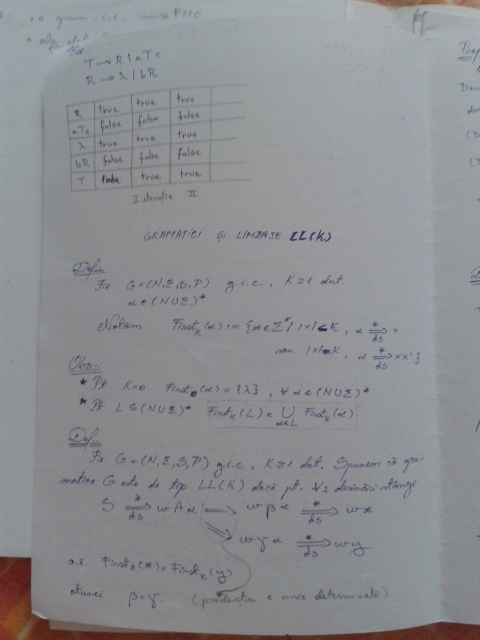 T → R | aTc
R → λ | bR
R true true true
aTc false false false
λ true true true
bR false false false
T false true true
I iteratie II
GRAMATICI ȘI LIMBAJE LL(K)
Defin:
Fie G=(N,Σ,S,P) g.i.c., K≥1 dat.
α∈(N∪Σ)*
Notam First_K(α) := {x∈Σ* | |x|≤K, α ⇒*ds x
sau |x|=K, α ⇒*ds xx'}
Obs.:
* Pt K=0 First_0(α) = {λ}, ∀ α∈(N∪Σ)*
* Pt L⊆(N∪Σ)* First_K(L) = ∪_{α∈L} First_K(α)
Defin:
Fie G=(N,Σ,S,P) g.i.c., K≥1 dat. Spunem că gra-
matica G este de tip LL(K) dacă pt. ∀2 derivări stângi
S ⇒*ds wAα ⇒ wβα ⇒*ds wx
⇒ wγα ⇒*ds wy
a.î. First_K(x) = First_K(y)
atunci β=γ. (producția e unic determinată)